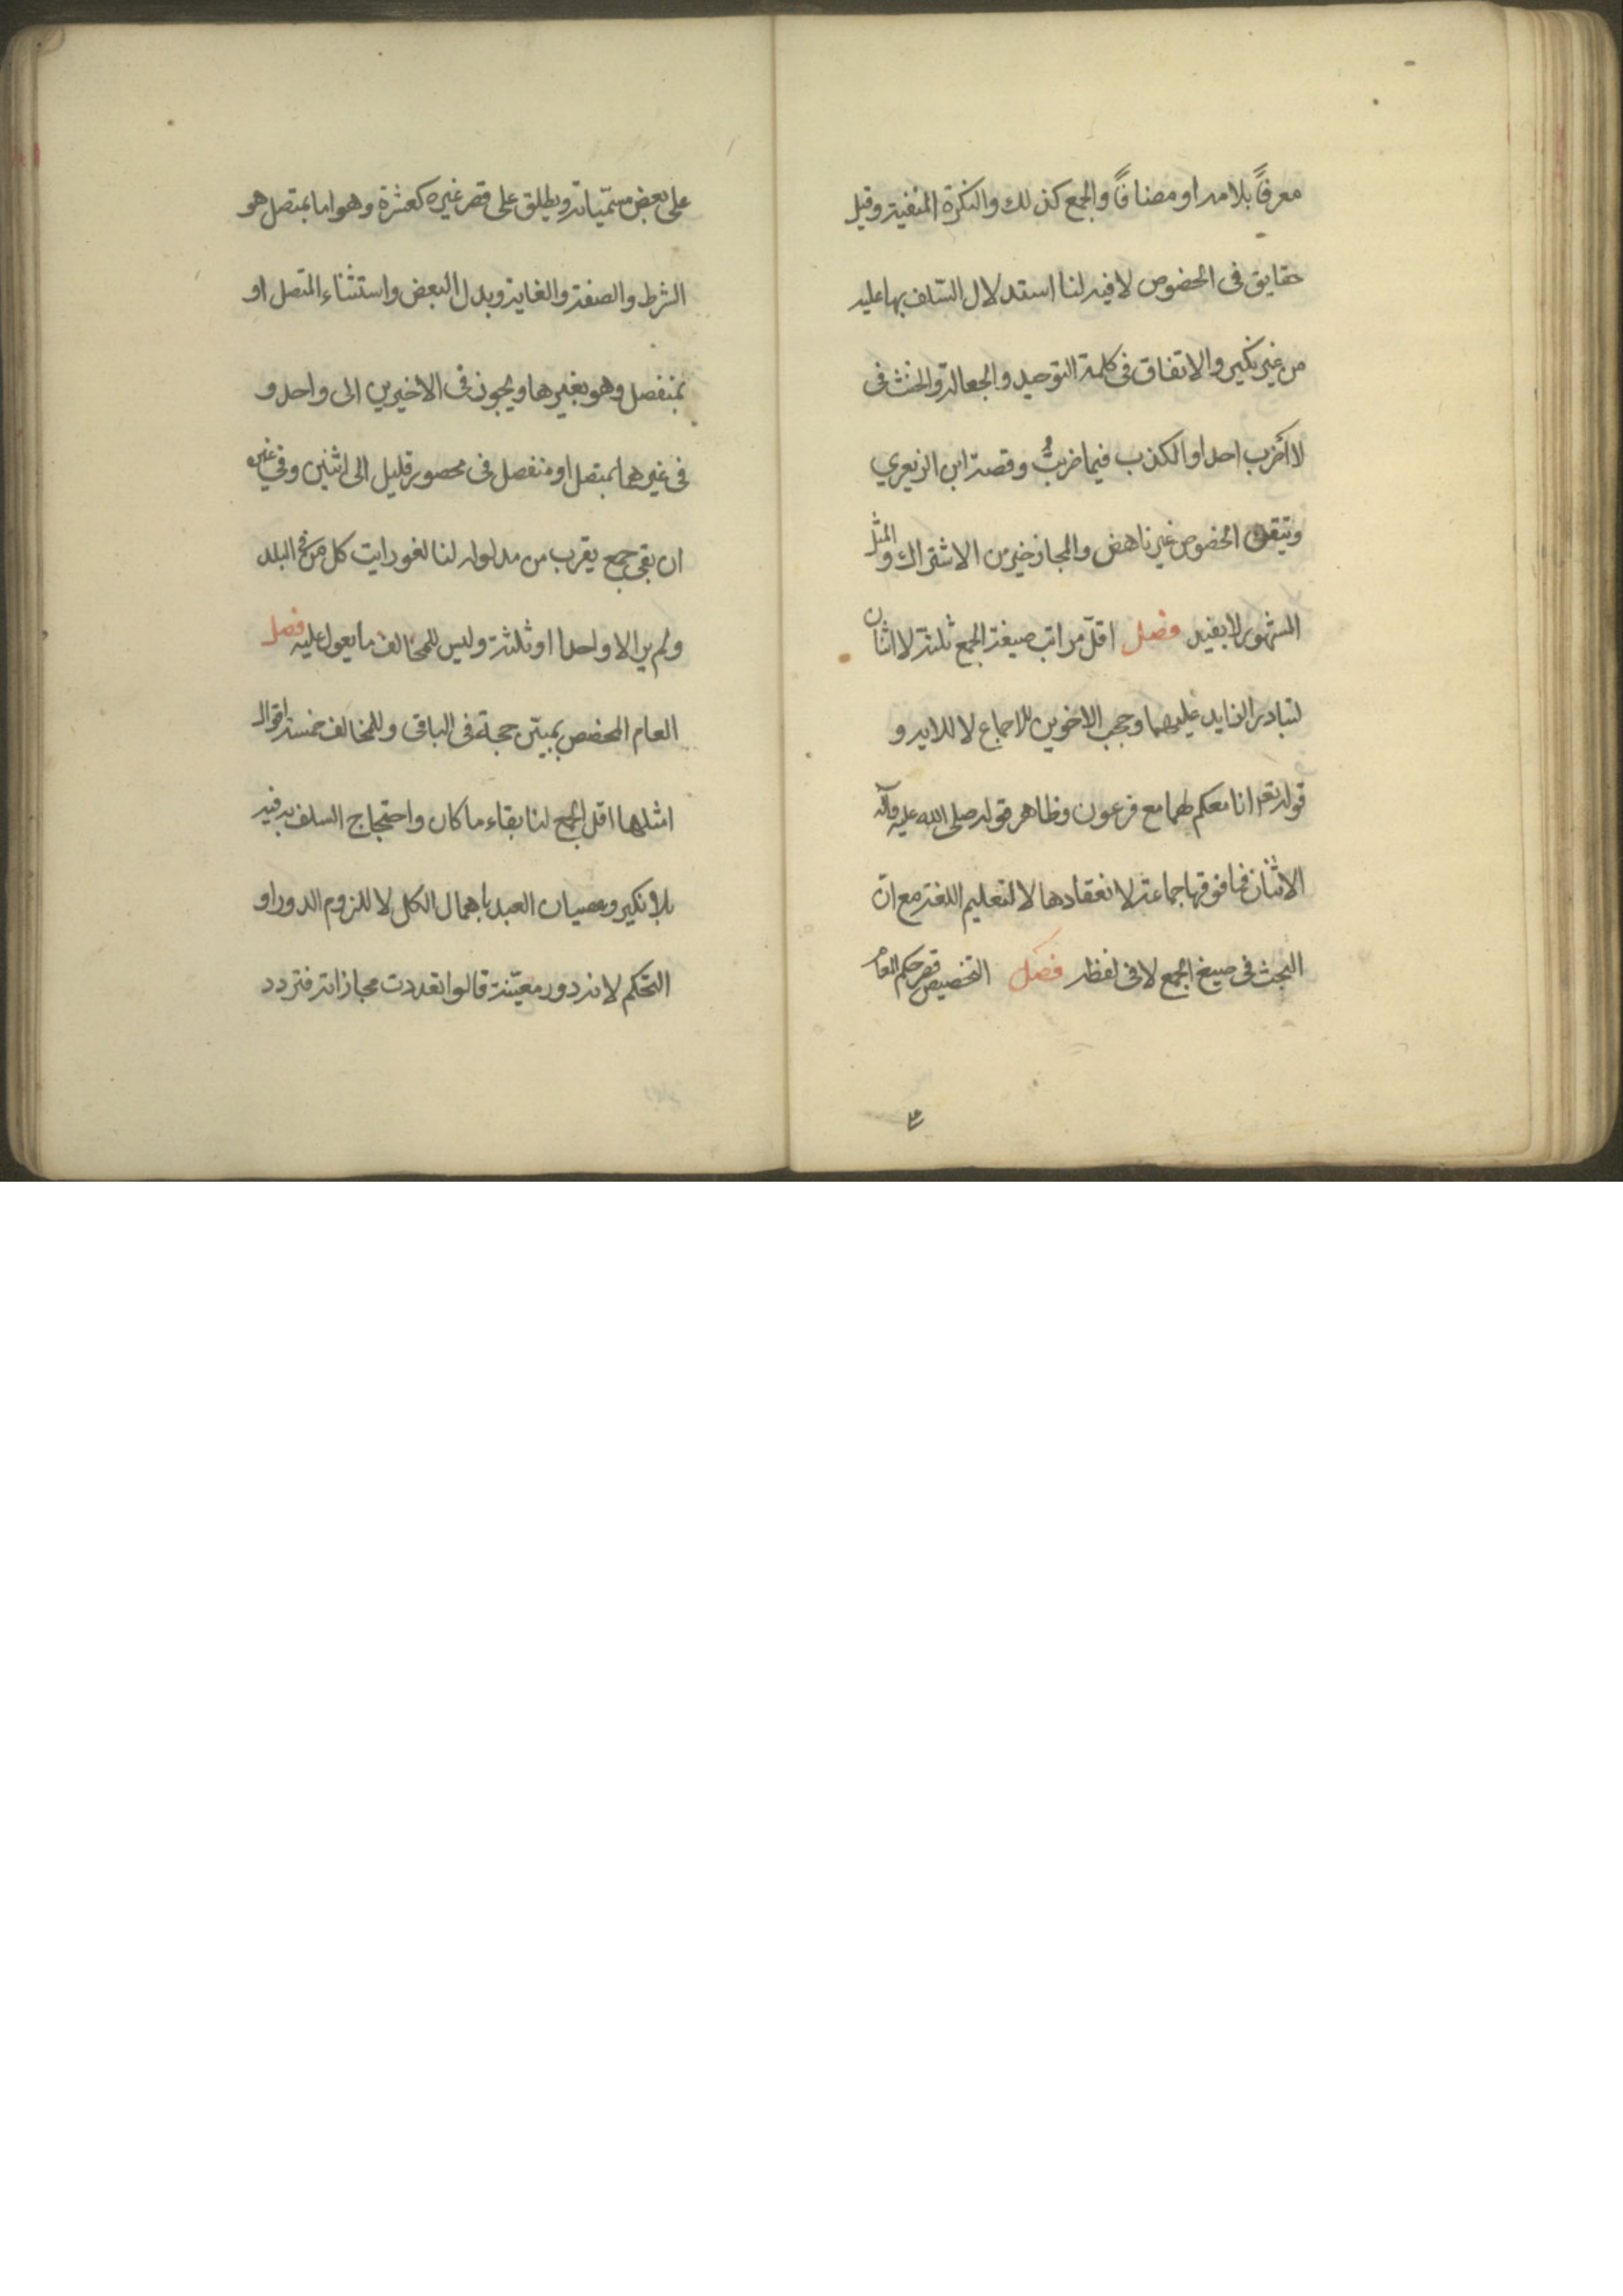 معرفاً بلامه او مضافاً والجمع كذلك والنكرة المنفية وقيل
حقايق فى الخصوص لا فيه لنا استدلال السّلف بها عليه
من غير نكير والاتفاق فى كلمة التوحيد و الجعالة والحنث فى
لا أضرب احدا والكذب فيما ضربتُ وقصة ابن الزبعري
وتيقن الخصوص غير ناهض والمجاز خير من الاشتراك و المثل
المشهور لا يفيد فصل اقلّ مراتب صيغة الجمع ثلثة لا اثنان
لتبادر الزايد عليهما وحجب الاخوين للاجماع لا للاية و
قوله تعم انا معكم لهما مع فرعون وظاهر قوله صلى الله عليه وآله
الاثنان فما فوقها جماعة لانعقادها لا لتعليم اللغة مع انّ
البحث فى صيغ الجمع لا فى لفظه فصل التخصيص قصر حكم العام
على بعض مسمّياته ويطلق على قصر غيره كعشرة وهو اما بمتصل هو
الشرط والصفة والغاية وبدل البعض واستثناء المتصل او
بمنفصل وهو بغيرها ويجوز فى الاخيرين الى واحد و
فى غيرهما بمتصل او منفصل فى محصور قليل الى اثنين وفي غيره
ان بقى جمع يقرب من مدلوله لنا لغو رايت كل من فى البلد
ولم ير الا واحدا او ثلثة وليس للمخالف ما يعول عليه فصل
العام المخصص بمبيّن حجة فى الباقى وللمخالف خمسة اقوال
امثلها اقل الجمع لنا بقاء ما كان واحتجاج السلف به فيه
بلا نكير وعصيان العبد باهمال الكل لا للزوم الدور او
التحكم لانه دور معيّته قالوا تعددت مجازاته فتردد